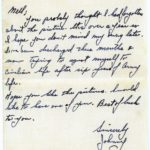 Well,
You probably thought I had forgotten
about the picture. It's over a year so
I hope you don't mind my being late.
I've been discharged three months &
now trying to adjust myself to
civilian life after six years of Army
life.
Hope you like the picture. I would
like to have one of you. Best of luck
to you.
Sincerely
Johnny